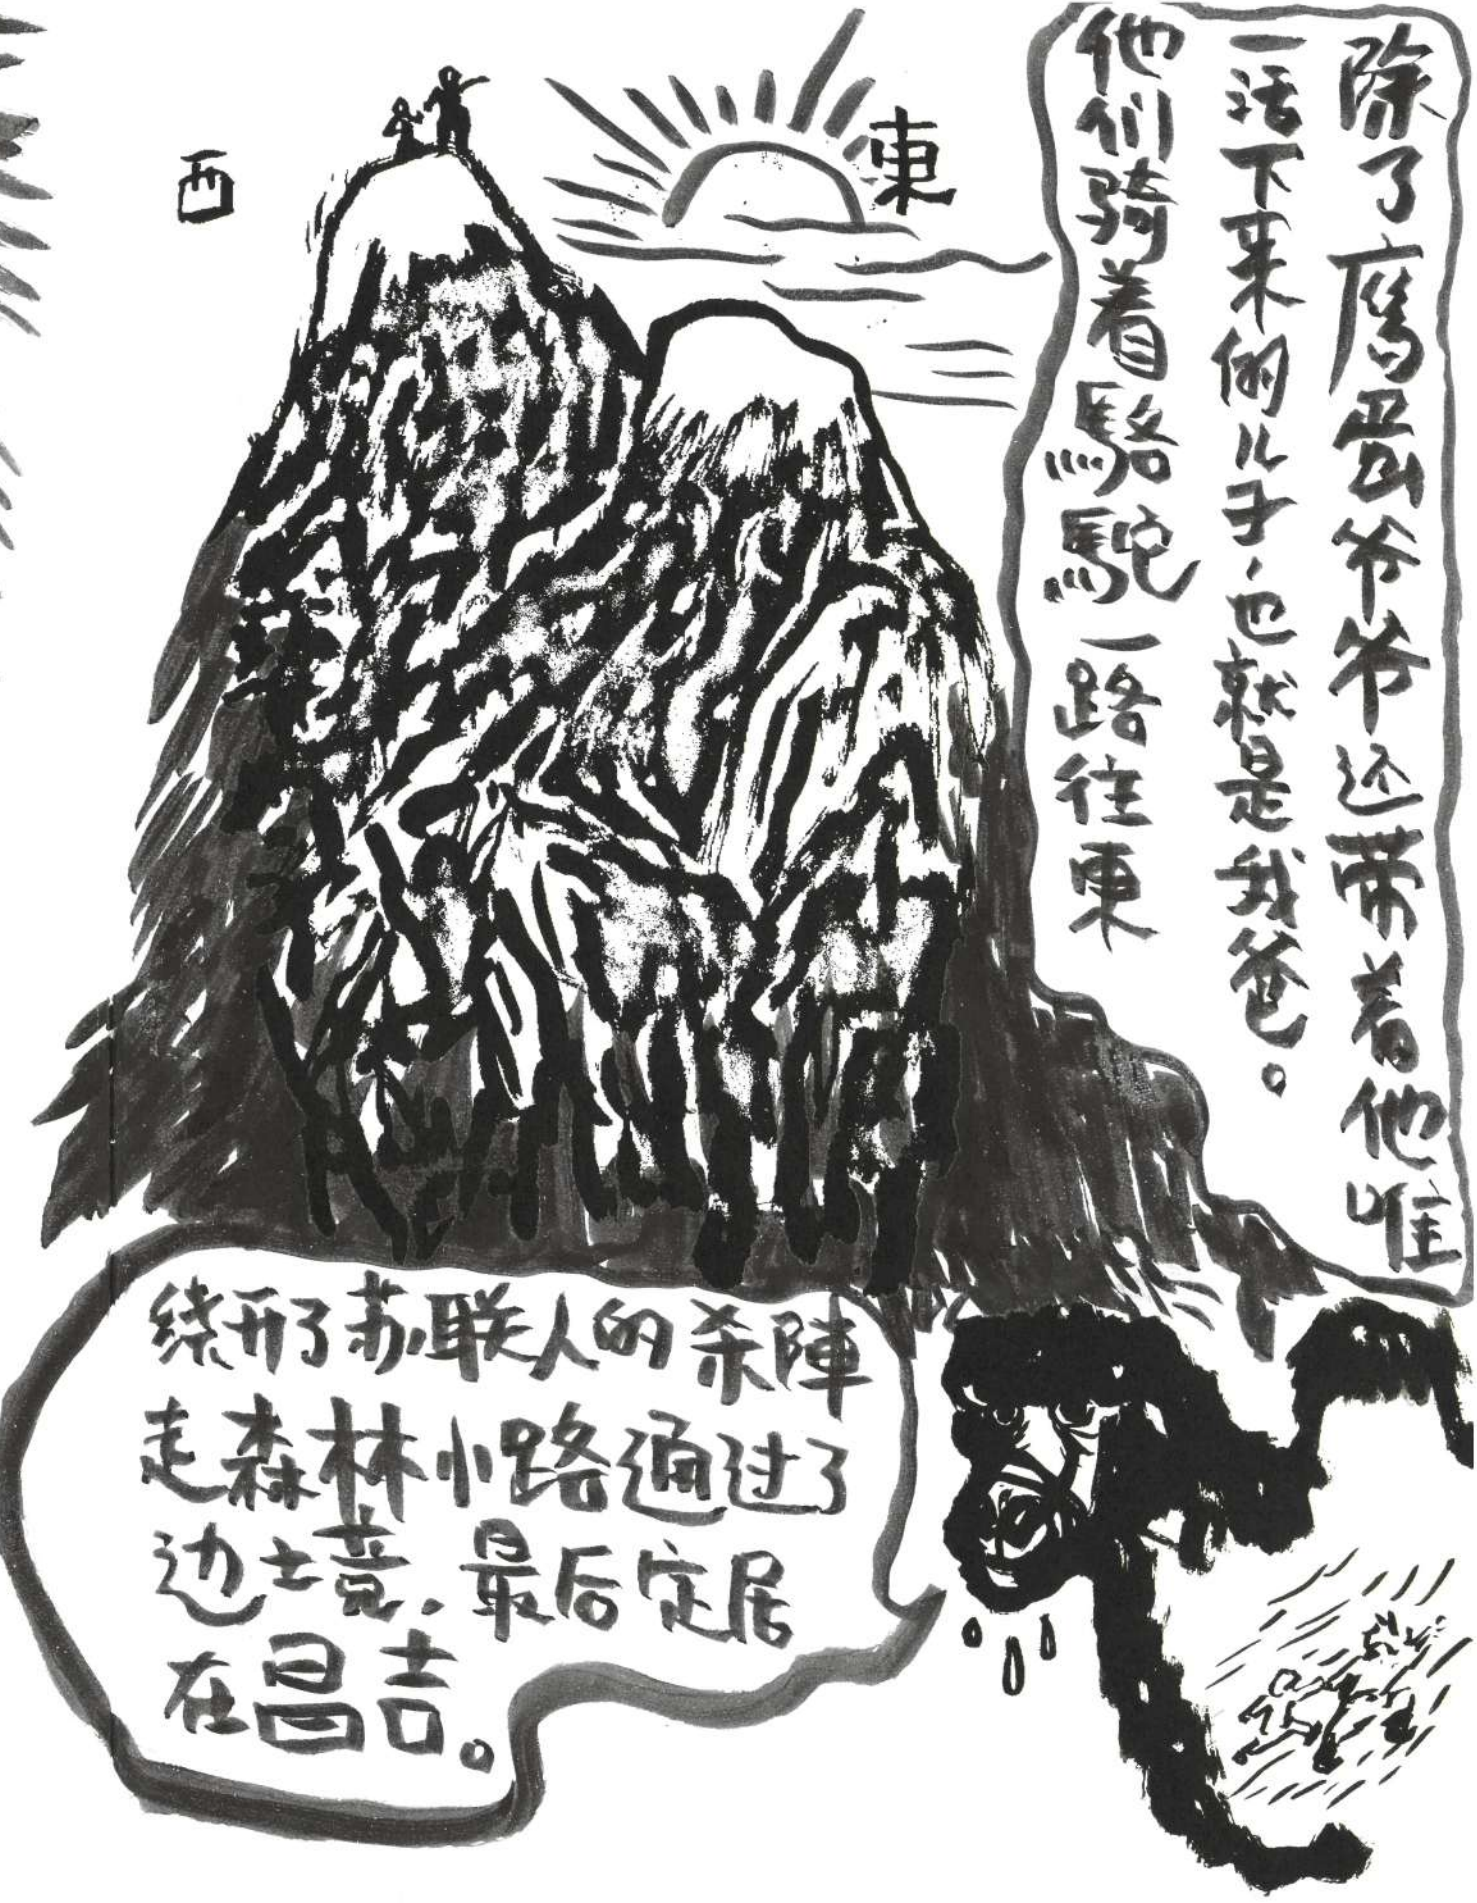 除了鹰蛋爷爷还带着他唯
一活下来的儿子,也就是我爸。
他们骑着駱駝一路往東
東
西
绕开了苏联人的杀陣
走森林小路通过了
边境,最后定居
在昌吉。